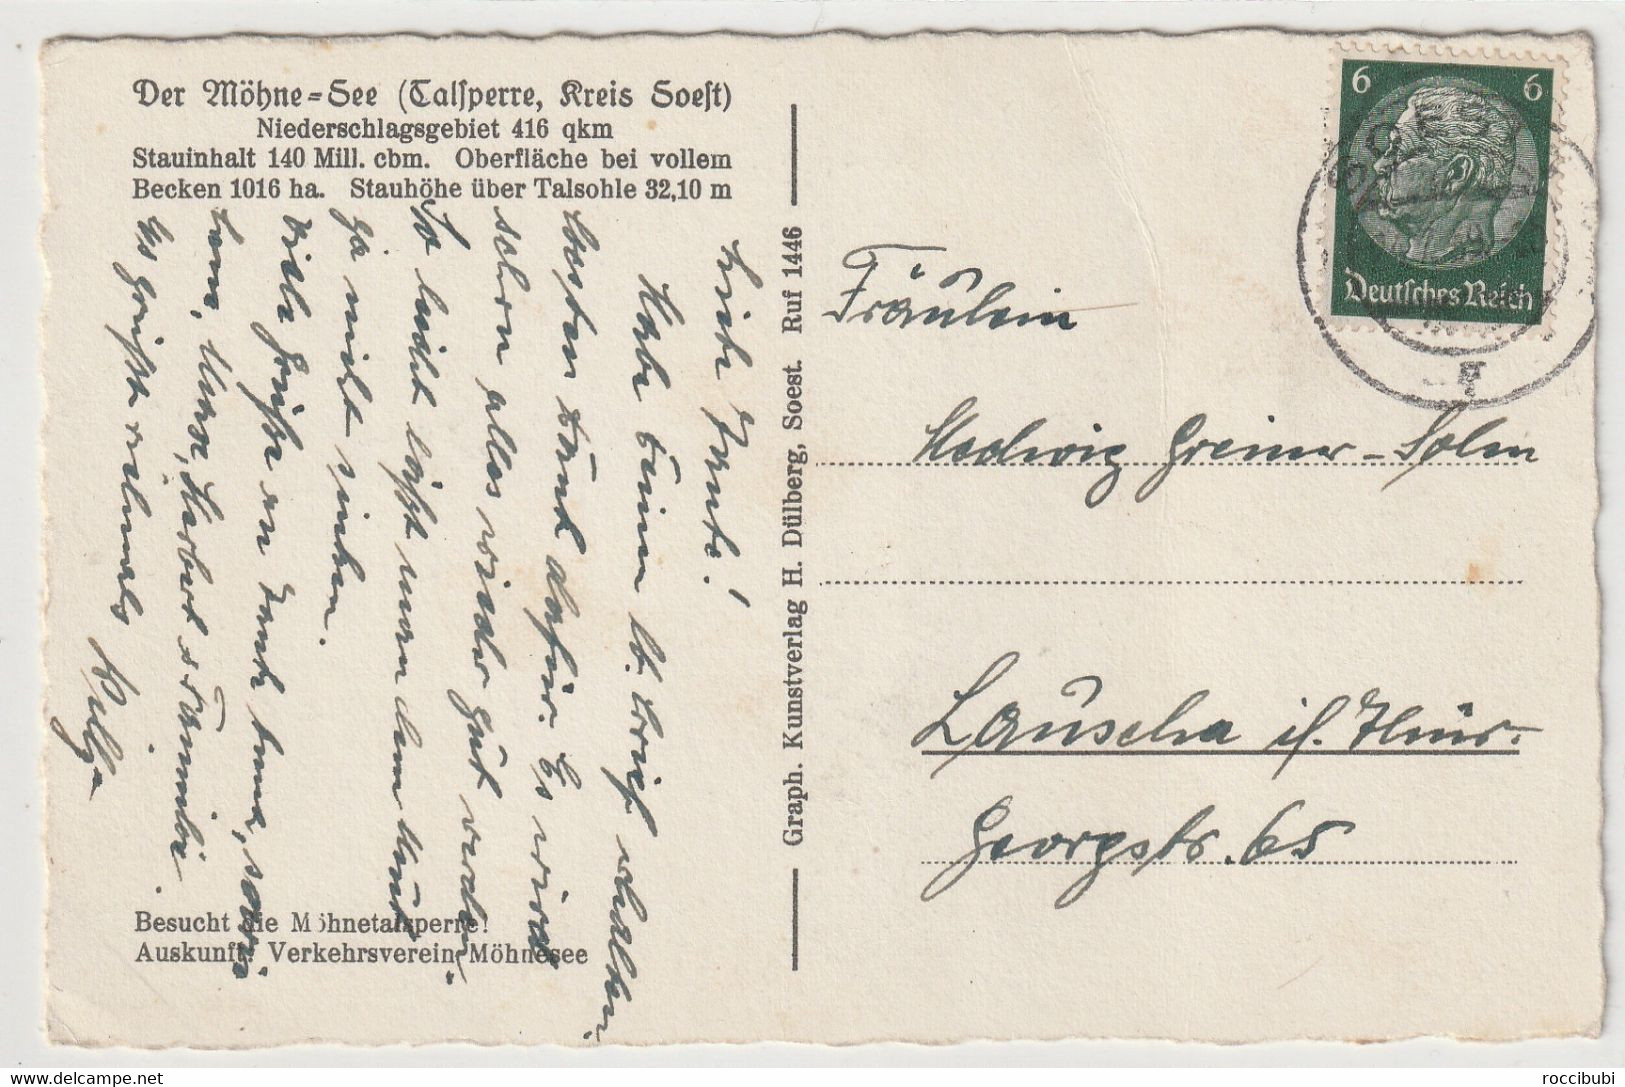 Der Möhne-See (Talsperre, Kreis Soest)
Niederschlagsgebiet 416 qkm
Stauinhalt 140 Mill. cbm. Oberfläche bei vollem
Becken 1016 ha. Stauhöhe über Talsohle 32,10 m
Liebe
Habe Deinen lb. Brief erhalten,
besten Dank dafür. Es wird
schon alles wieder gut werden.
So leicht läßt man den Mut
ja nicht sinken.
Viele Grüße an Tante Emma, sowie
Herbert
Es grüßt vielmals
Besucht die Möhnetalsperre!
Auskunft: Verkehrsverein Möhnesee
Graph. Kunstverlag H. Dülberg, Soest. Ruf 1446
6 6
Deutsches Reich
SOEST
Fräulein
Hedwig Greiner-Solm
Lauscha i/. Thür.
Georgstr. 65
roccibubi